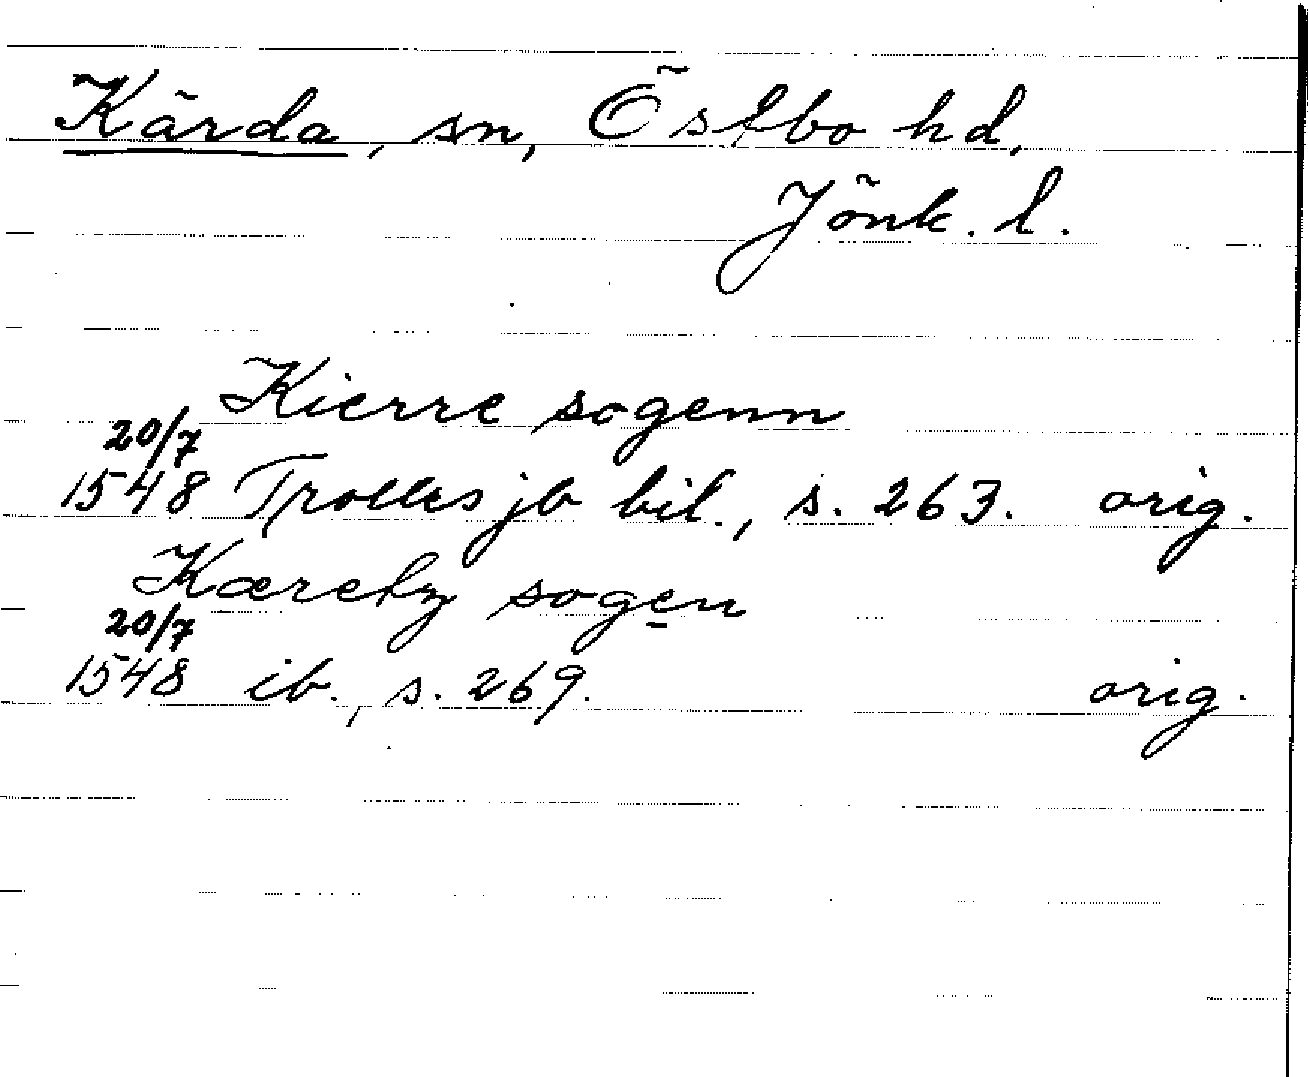 Kärda, sn, Östbo hd,
Jönk. l.
Kierre sogenn
20/7
1548 Trolles jb bil., s. 263. orig.
Kæretz sogen
20/7
1548 ib., s. 269. orig.